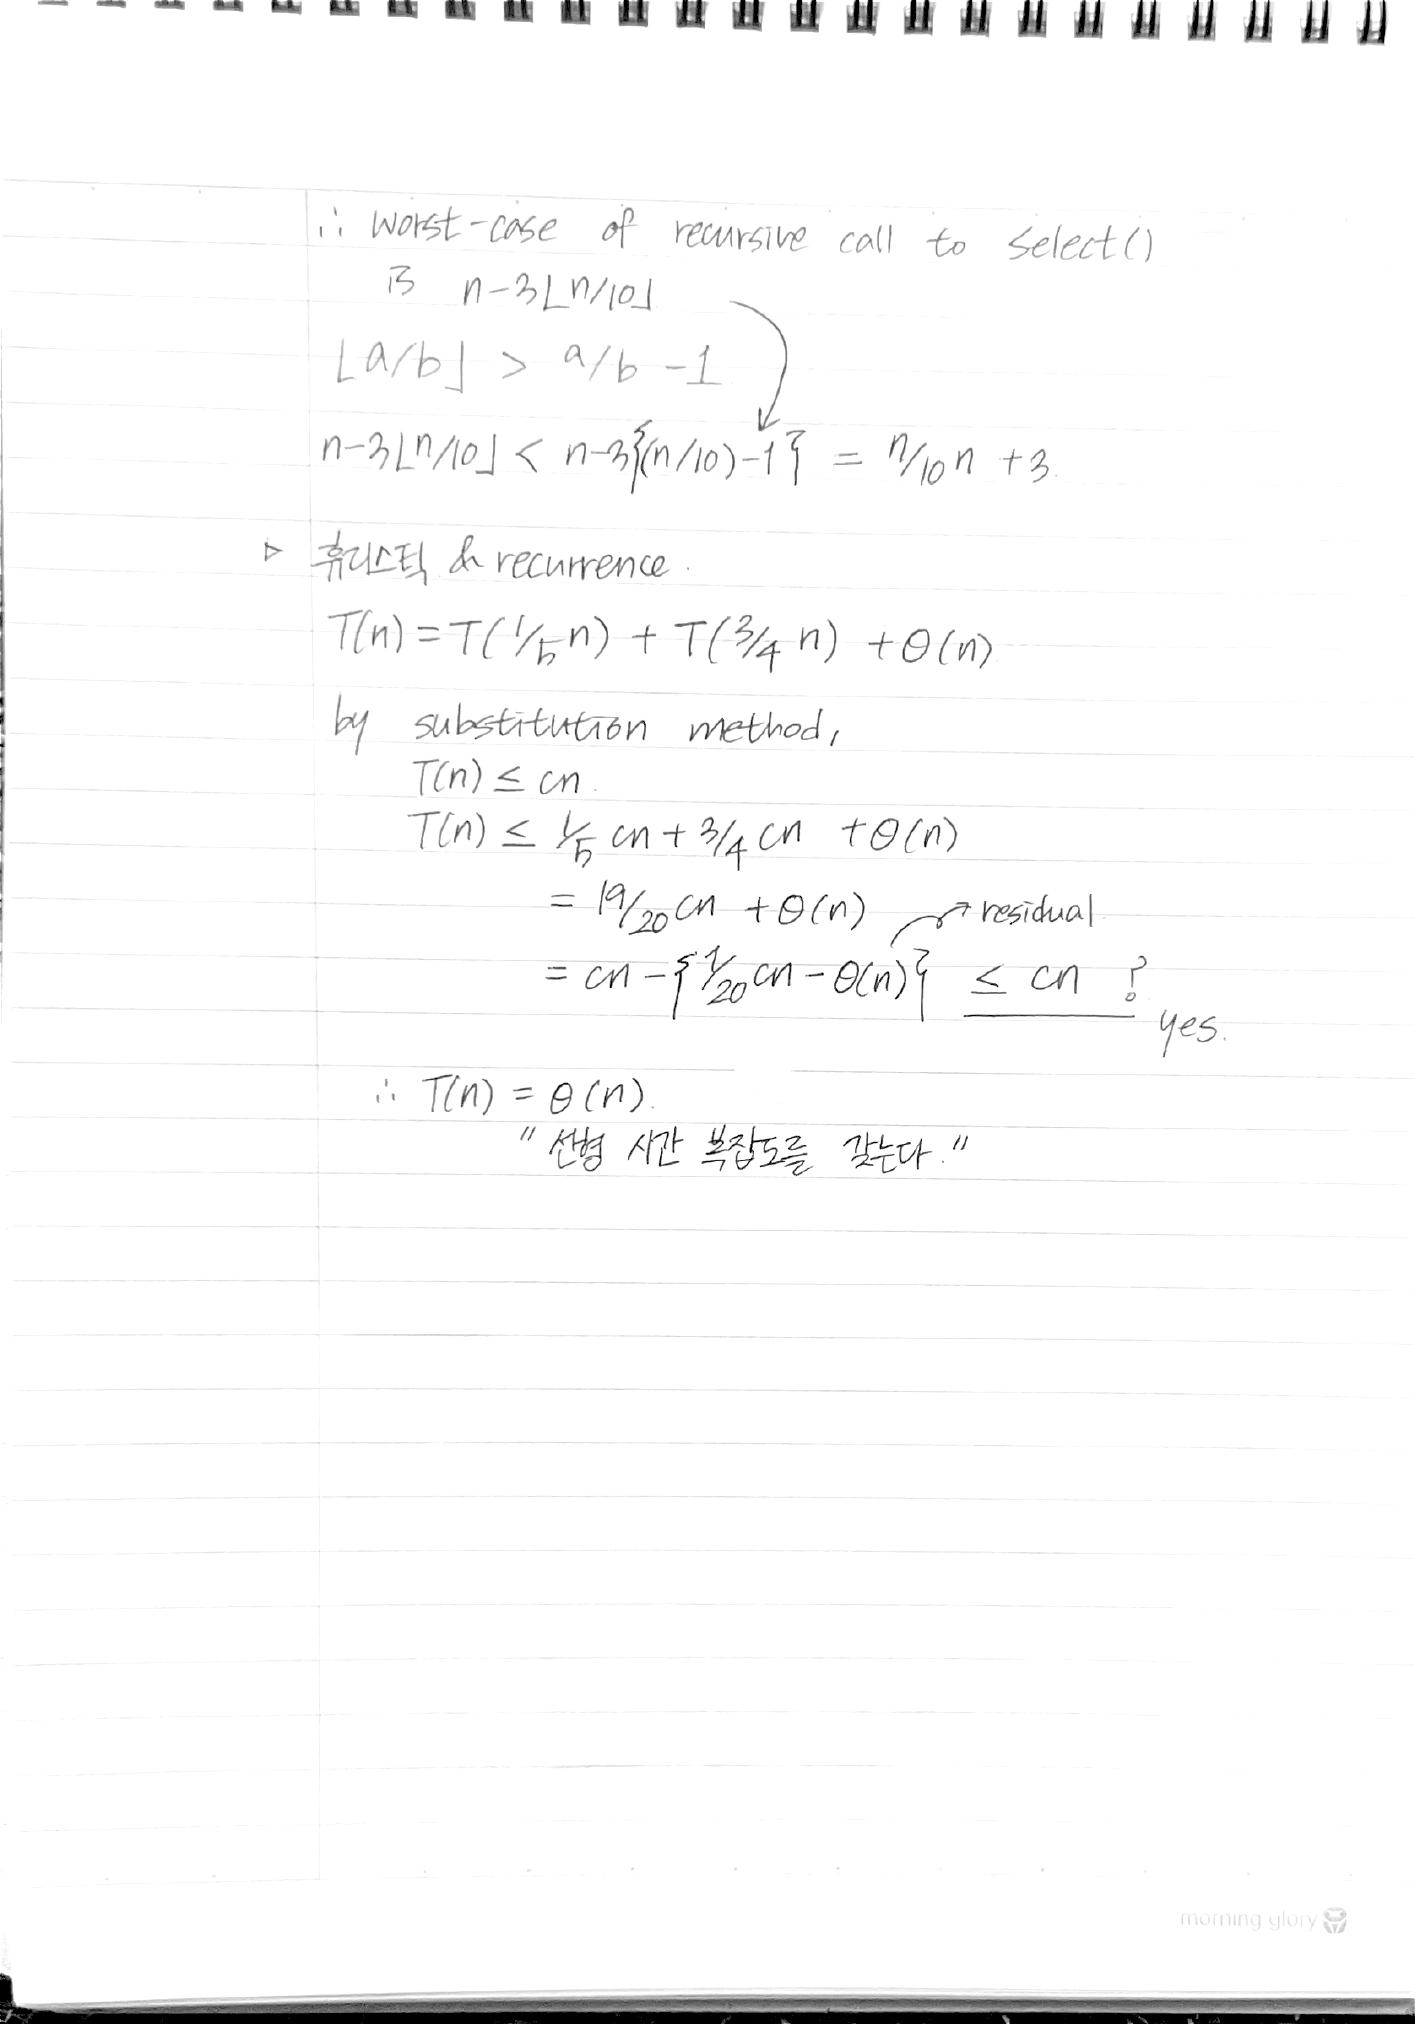 ∴ worst-case of recursive call to select()
is n-3⌊n/10⌋
⌊a/b⌋ > a/b -1
n-3⌊n/10⌋ < n-3{(n/10)-1} = n/10n +3.
▷ 휴리스틱 & recurrence.
T(n) = T(1/5n) + T(3/4n) + Θ(n)
by substitution method,
T(n) ≤ cn.
T(n) ≤ 1/5 cn + 3/4 cn + Θ(n)
= 19/20 cn + Θ(n) → residual.
= cn - {1/20 cn - Θ(n)} ≤ cn ?
yes.
∴ T(n) = Θ(n).
"선형 시간 복잡도를 갖는다."
morning glory